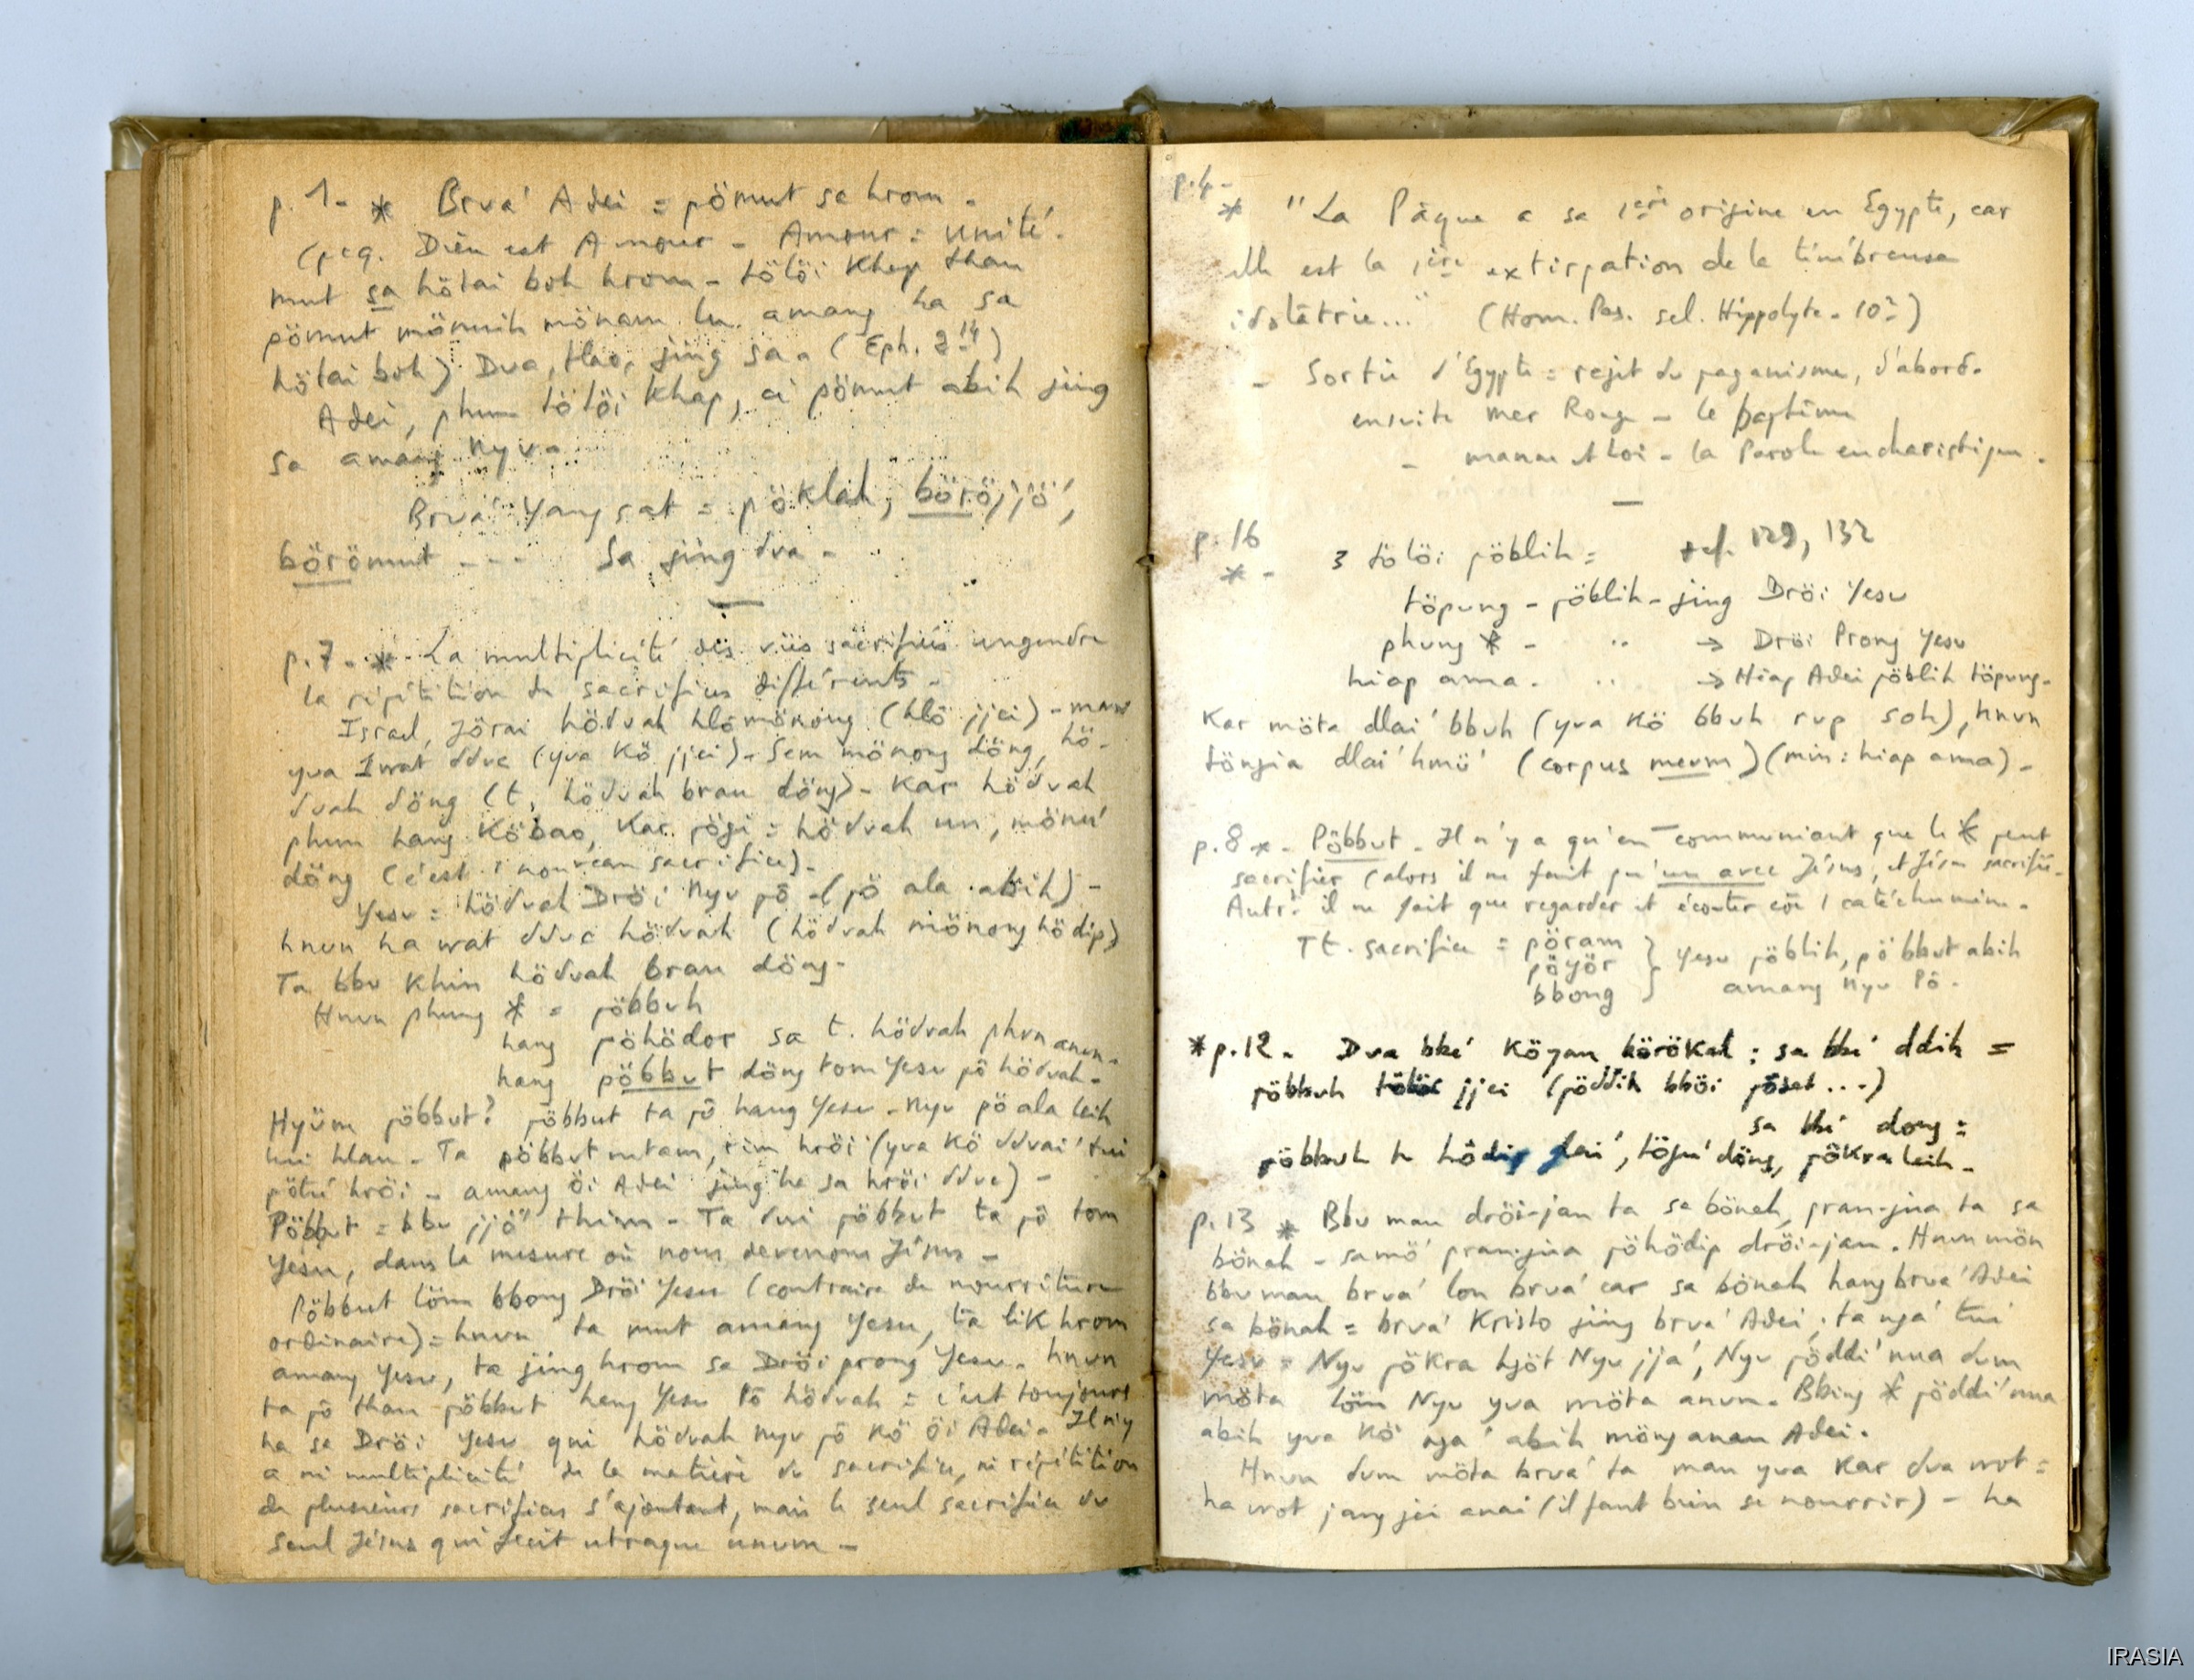 p. 1- * Brva' Adei = pömut sa hrom -
(pcq. Dieu est Amour - Amour = unité.
mut sa hötai boh hrom - tölöi Khap than
pömut mönuih mönam lu amang ha sa
hötai boh) Dua, tlao, jing sa - (Eph. 2 14)
Adei, phun tölöi Khap, ai pömut abih jing
sa amang Nyu -
Brva' Yang sat = pöklah, böröjjö',
börömut - - - Sa jing dua -
p. 7 - * - La multiplicité des vies sacrifiées engendre
la répétition de sacrifices différents -
Israel, Jörai hödvah hlö mönong (hlö jjei) - man
yua Iwat ddvc (yua Kö jjei) - Sem mönong döng, hö-
dvah döng (t. hödvah brau döng) - Kar hödvah
phun hang Köbao, Kar pögi = hödvah un, mönu'
döng (c'est 1 nouveau sacrifice) -
Yesu = hödvah Dröi Nyu pö (pö ala abih) -
hnun ha wat ddvc hödvah (hödvah mönong hödip)
Ta bbu Khin hödvah brau döng -
Hnun phung * = pöbbuh
hang pöhödor sa t. hödvah phun anun -
hang pöbbut döng tom Yesu pö hödvah -
Hyüm pöbbut? pöbbut ta pö hang Yesu - Nyu pö ala leih
hui hlau - Ta pöbbut rutam, rim hröi (yua Kö ddvai' tui
pötu' hröi - amang öi Adei jing ha sa hröi ddvc) -
Pöbbut = bbu jjö' thim - Ta dui pöbbut ta pö tom
Yesu, dans la mesure où nous devenons Jésus -
Pöbbut löm bbong Dröi Yesu (contraire de nourriture
ordinaire) = hnun ta mut amang Yesu, ta lik hrom
amang Yesu, ta jing hrom sa Dröi prong Yesu - hnun
ta pö than pöbbut hang Yesu Pö hödvah = c'est toujours
ha sa Dröi Yesu qui hödvah Nyu pö Kö öi Adei - Il n'y
a ni multiplicité de la matière du sacrifice, ni répétition
de plusieurs sacrifices s'ajoutant, mais le seul sacrifice du
seul Jésus qui fecit utraque unum -
p. 4 -
* "La Pâque a sa 1ère origine en Egypte, car
elle est la 1ère extirpation de la ténébreuse
idolâtrie..." (Hom. Pas. sel. Hippolyte - 10)
- Sortie d'Egypte = rejet du paganisme, d'abord.
ensuite mer Rouge - le baptême
- manne et Loi - la Parole eucharistique.
p. 16
* - 3 tölöi pöblih = cf. 129, 132
töpung - pöblih - jing Dröi Yesu
phung * - .. → Dröi Prong Yesu
hiap ama - .. → Hiap Adei pöblih töpung -
Kar möta dlai' bbuh (yua Kö bbuh rup soh), hnun
töngia dlai' hmü' (corpus meum) (min : hiap ama) -
p. 8 * - Pöbbut - Il n'y a qu'en communiant que le * peut
sacrifier (alors il ne fait qu'un avec Jésus, et Jésus sacrifié -
Autrt il ne fait que regarder et écouter cõe 1 catéchumène -
Tt. sacrifice = pöram } Yesu pöblih, pöbbut abih
pöyör
bbong } amang Nyu Pö -
* p. 12 - Dua bbe' Köyau börökat : sa bbe' ddih =
pöbbuh tölöi jjei (pöddih bböi pösat ...)
sa bbe' dong =
pöbbuh ta hödip glai', tögu' döng, pökra leih -
p. 13 * Bbu man dröi-jan ta sa bönah, pran-jua ta sa
bönah - samö' pran-jua pöhödip dröi-jan. Hnun món
bbu man brva' lon brva' car sa bönah hang brva' Adei
sa bönah = brva' Kristo jing brva' Adei ; ta nga' tui
Yesu = Nyu pökra hjöt Nyu jja', Nyu pöddi' nua dum
möta löm Nyu yua möta anun. Bbing * pöddi' nua
abih yua Kö nga' abih möng anan Adei.
Hnun dum möta brva' ta man yua Kar dua wot =
ha wot jang jei anai (il faut bien se nourrir) - ha
IRASIA